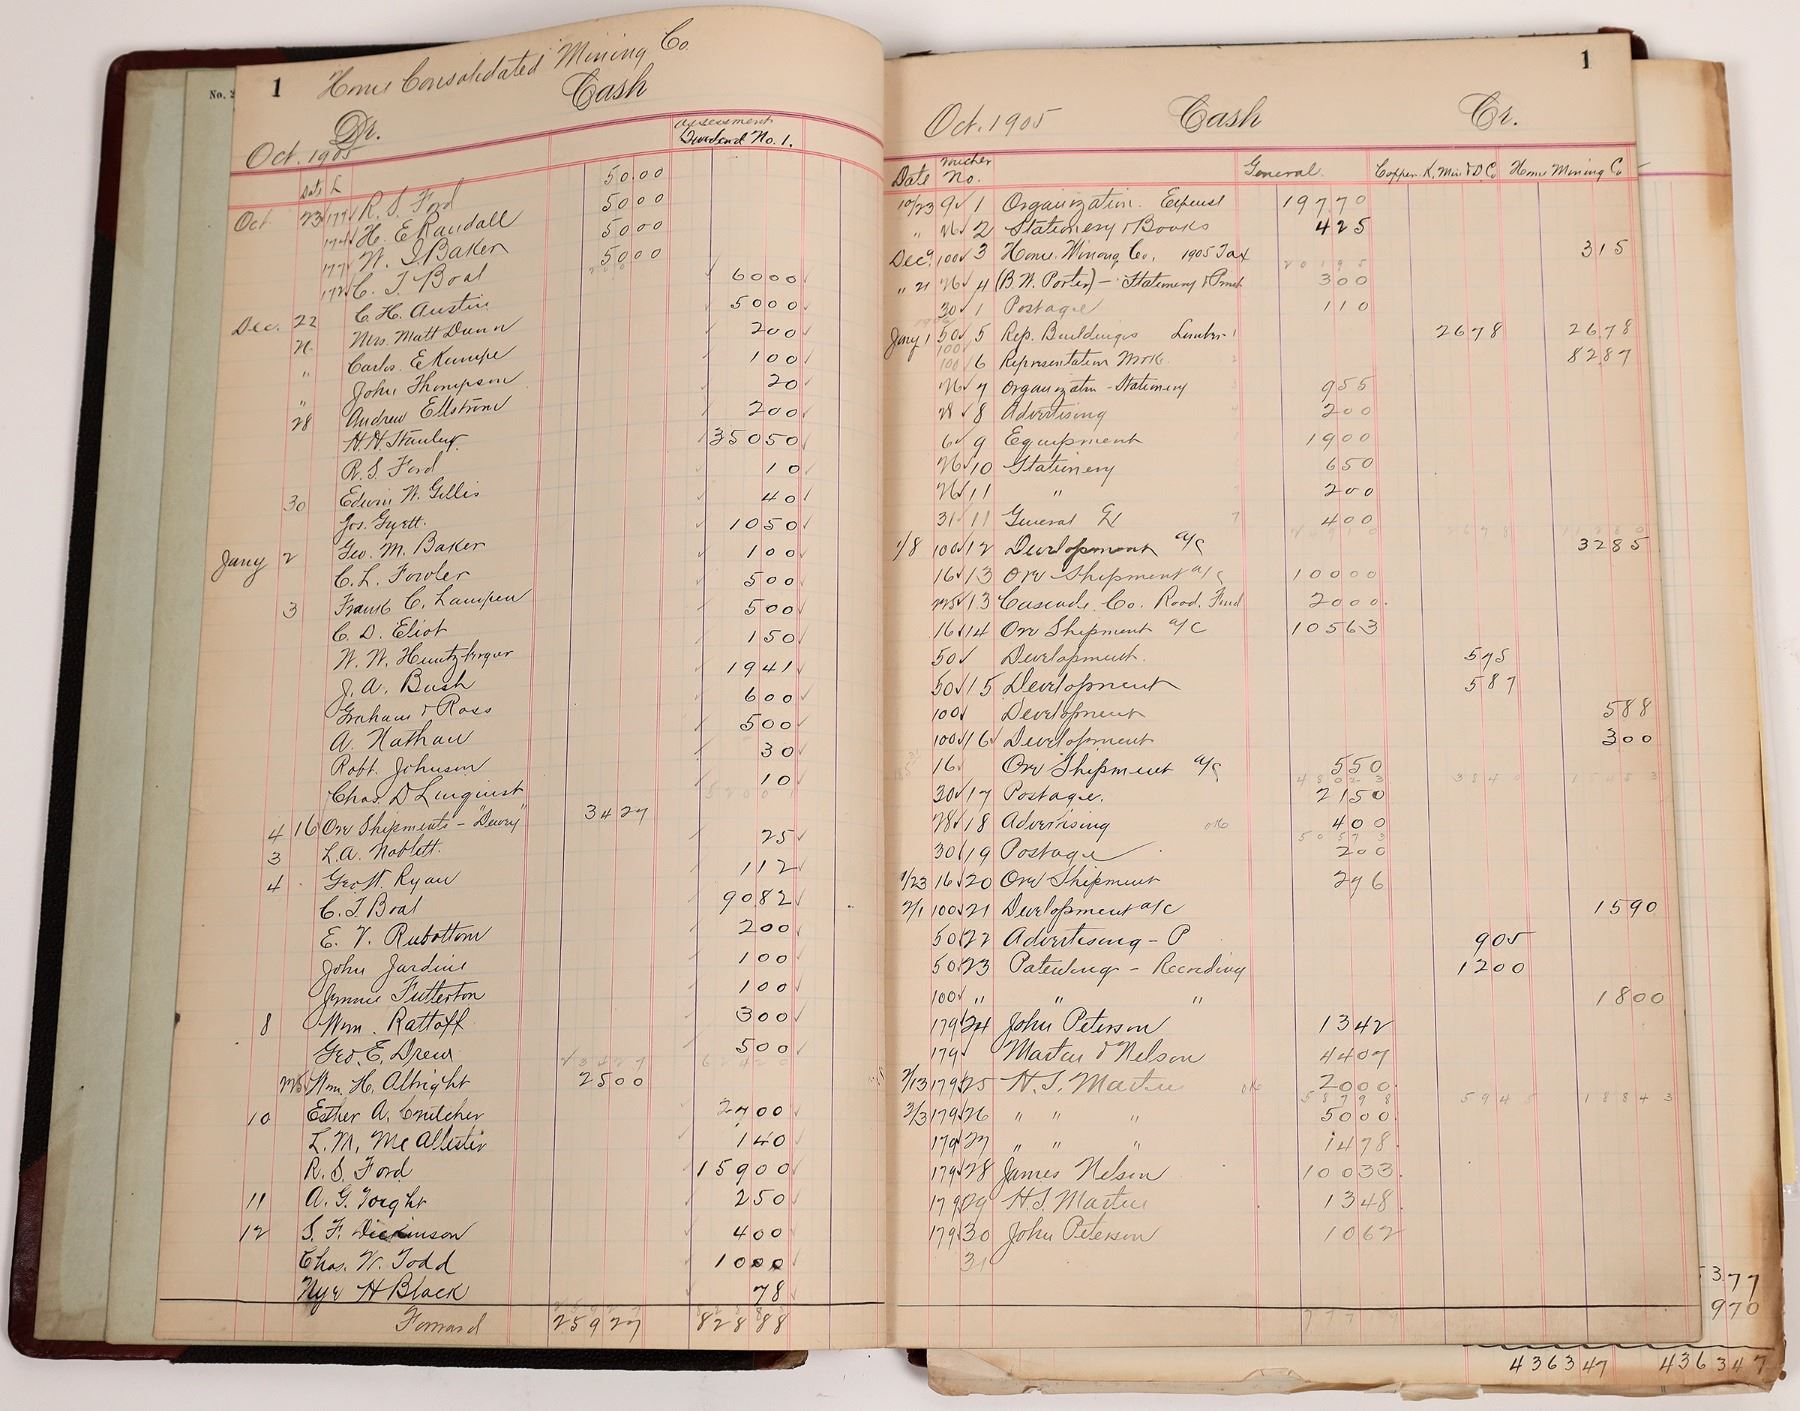 1 Home Consolidated Mining Co.
Cash
Dr.
Oct. 1905
Assessment
Dividend No. 1.
Date L
Oct 23 179 R. S. Ford 50.00
H. E Randall 5000
W. J. Baker 5000
C. T. Boal 5000
Dec. 22 C. H. Austin 6000
Mrs. Matt Dunn 5000
Carlos E Kumpe 200
" John Thompson 100
" Andrew Ellstrom 20
28 H. H. Stanley 200
R. S. Ford 35050
30 Edwin W. Gillis 10
Jos. Gyett. 40
Jany 2 Geo. M. Baker 1050
C. L. Fowler 100
3 Frank C. Lampen 500
C. D. Eliot 500
W. W. Huntzberger 150
J. A. Bush 1941
Graham & Ross 600
A. Nathan 500
Robt. Johnson 30
Chas D Linquist 10
4 16 Ore Shipments - "Dewey" 3427
3 L. A. Noblett. 25
4 Geo W. Ryan 112
C. T. Boal 9082
E. V. Rubottom 200
John Jardine 100
Jennie Fitterton 100
8 Wm. Rattoff 300
Geo. E. Drew 500
Wm. H. Albright 2500
10 Esther A. Cruicher 2400
L. M. McAllister 140
R. S. Ford 15900
11 A. G. Voight 250
12 S. F. Dickinson 400
Chas. W. Todd 1000
Nye H Black 78
Forward 25927 82888
1
Oct. 1905 Cash Cr.
Date Voucher No. General Copper K. Min & D Co Home Mining Co
10/23 9 1 Organization Expense 19770
" 26 2 Stationery & Books 425
Dec 9 100 3 Home Mining Co. 1905 Tax 315
" 21 26 4 (B. W. Porter) - Stationery & Print 300
30 1 Postage 110
Jany 1 50 5 Rep. Buildings Lumber 2678 2678
100 6 Representation Work. 8287
26 7 Organizatn - Stationery 955
28 8 Advertising 200
6 9 Equipment 1900
26 10 Stationery 650
26 11 " 200
31 11 General Ex 400
1/8 100 12 Development a/c 3285
16 13 Ore Shipment a/c 10000
13 Cascade Co. Road Fund 2000
16 14 Ore Shipment a/c 10563
50 Development. 575
50 15 Development 587
100 Development 588
100 16 Development 300
16 Ore Shipment a/c 550
30 17 Postage. 2150
28 18 Advertising 400
30 19 Postage 200
1/23 16 20 Ore Shipment 296
2/1 100 21 Development a/c 1590
50 22 Advertising - P 905
50 23 Patenting - Recording 1200
100 " " " 1800
179 24 John Peterson 1342
179 Martin & Nelson 4407
2/13 179 25 H. S. Martin 2000
3/3 179 26 " " " 5000
179 27 " " " 1478
179 28 James Nelson 10033
179 29 H. S. Martin 1348
179 30 John Peterson 1062
31
5377
970
436347 436347